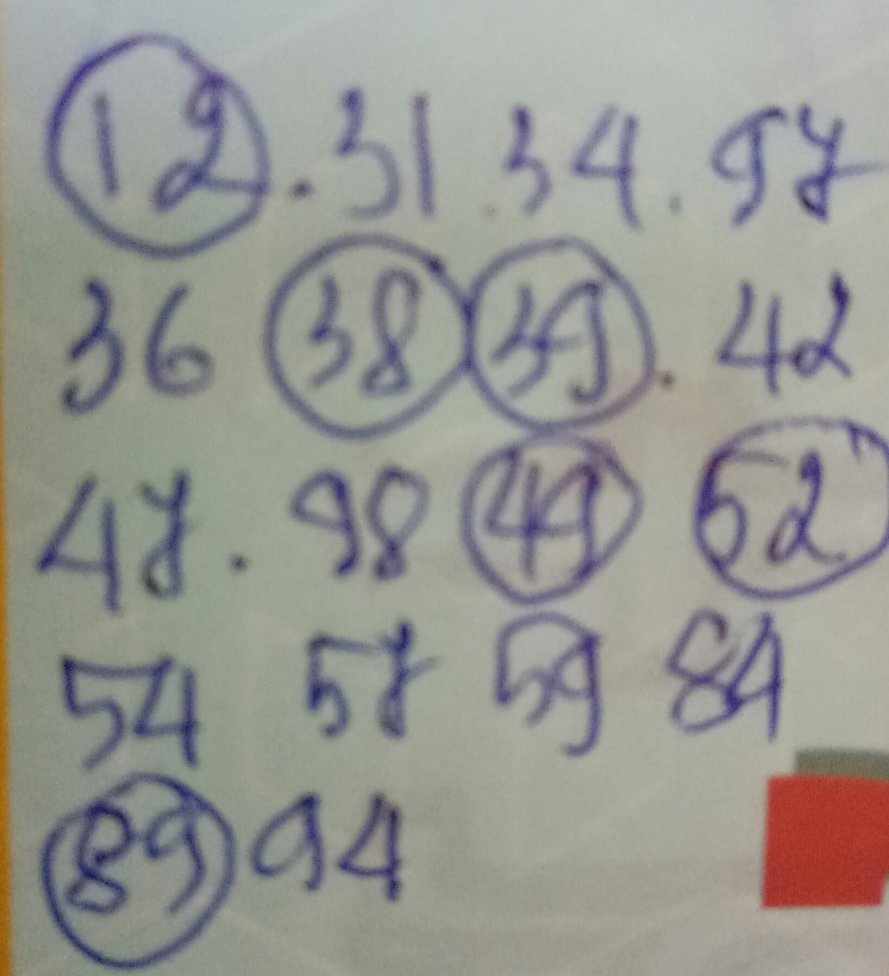 12. 31. 34. 97
36 38 39. 42
47. 98 49 52
54 57 59 84
89 94